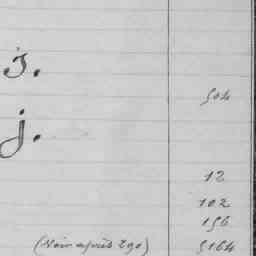 J.
504
j.
12
102
156
(Voir après 290) 5164